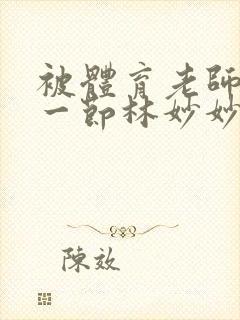 被體育老師
一節林妙妙
陳效